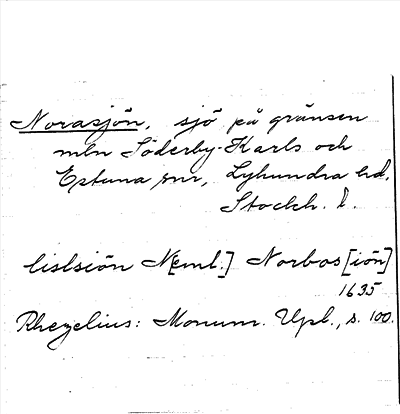 Norasjön, sjö på gränsen
mln Söderby-Karls och
Estuna snr, Lyhundra hd,
Stockh. l.
lislsiön N[eml.] Norbos[iön]
1635
Rhezelius: Monum. Upl., s. 100.